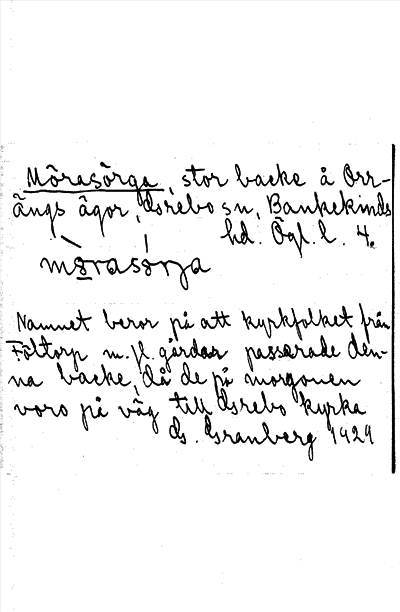 Mõrasõrga, stor backe å Orr-
ängs ägor, Grebo sn, Bankekinds
hd. Ögl. l. 4.
mo̲rasorja
Namnet beror på att kyrkfolket från
Fältorp m. fl. gårdar passerade den-
na backe, då de på morgonen
voro på väg till Grebo kyrka
G. Granberg 1929